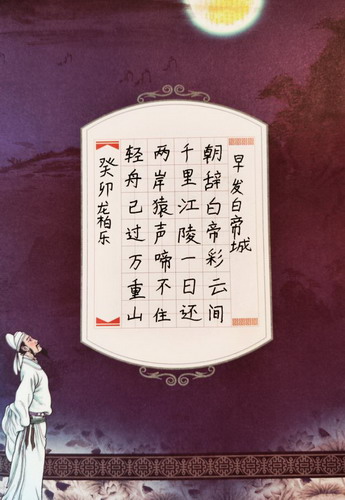 早发白帝城
朝辞白帝彩云间
千里江陵一日还
两岸猿声啼不住
轻舟已过万重山
癸卯龙柏乐